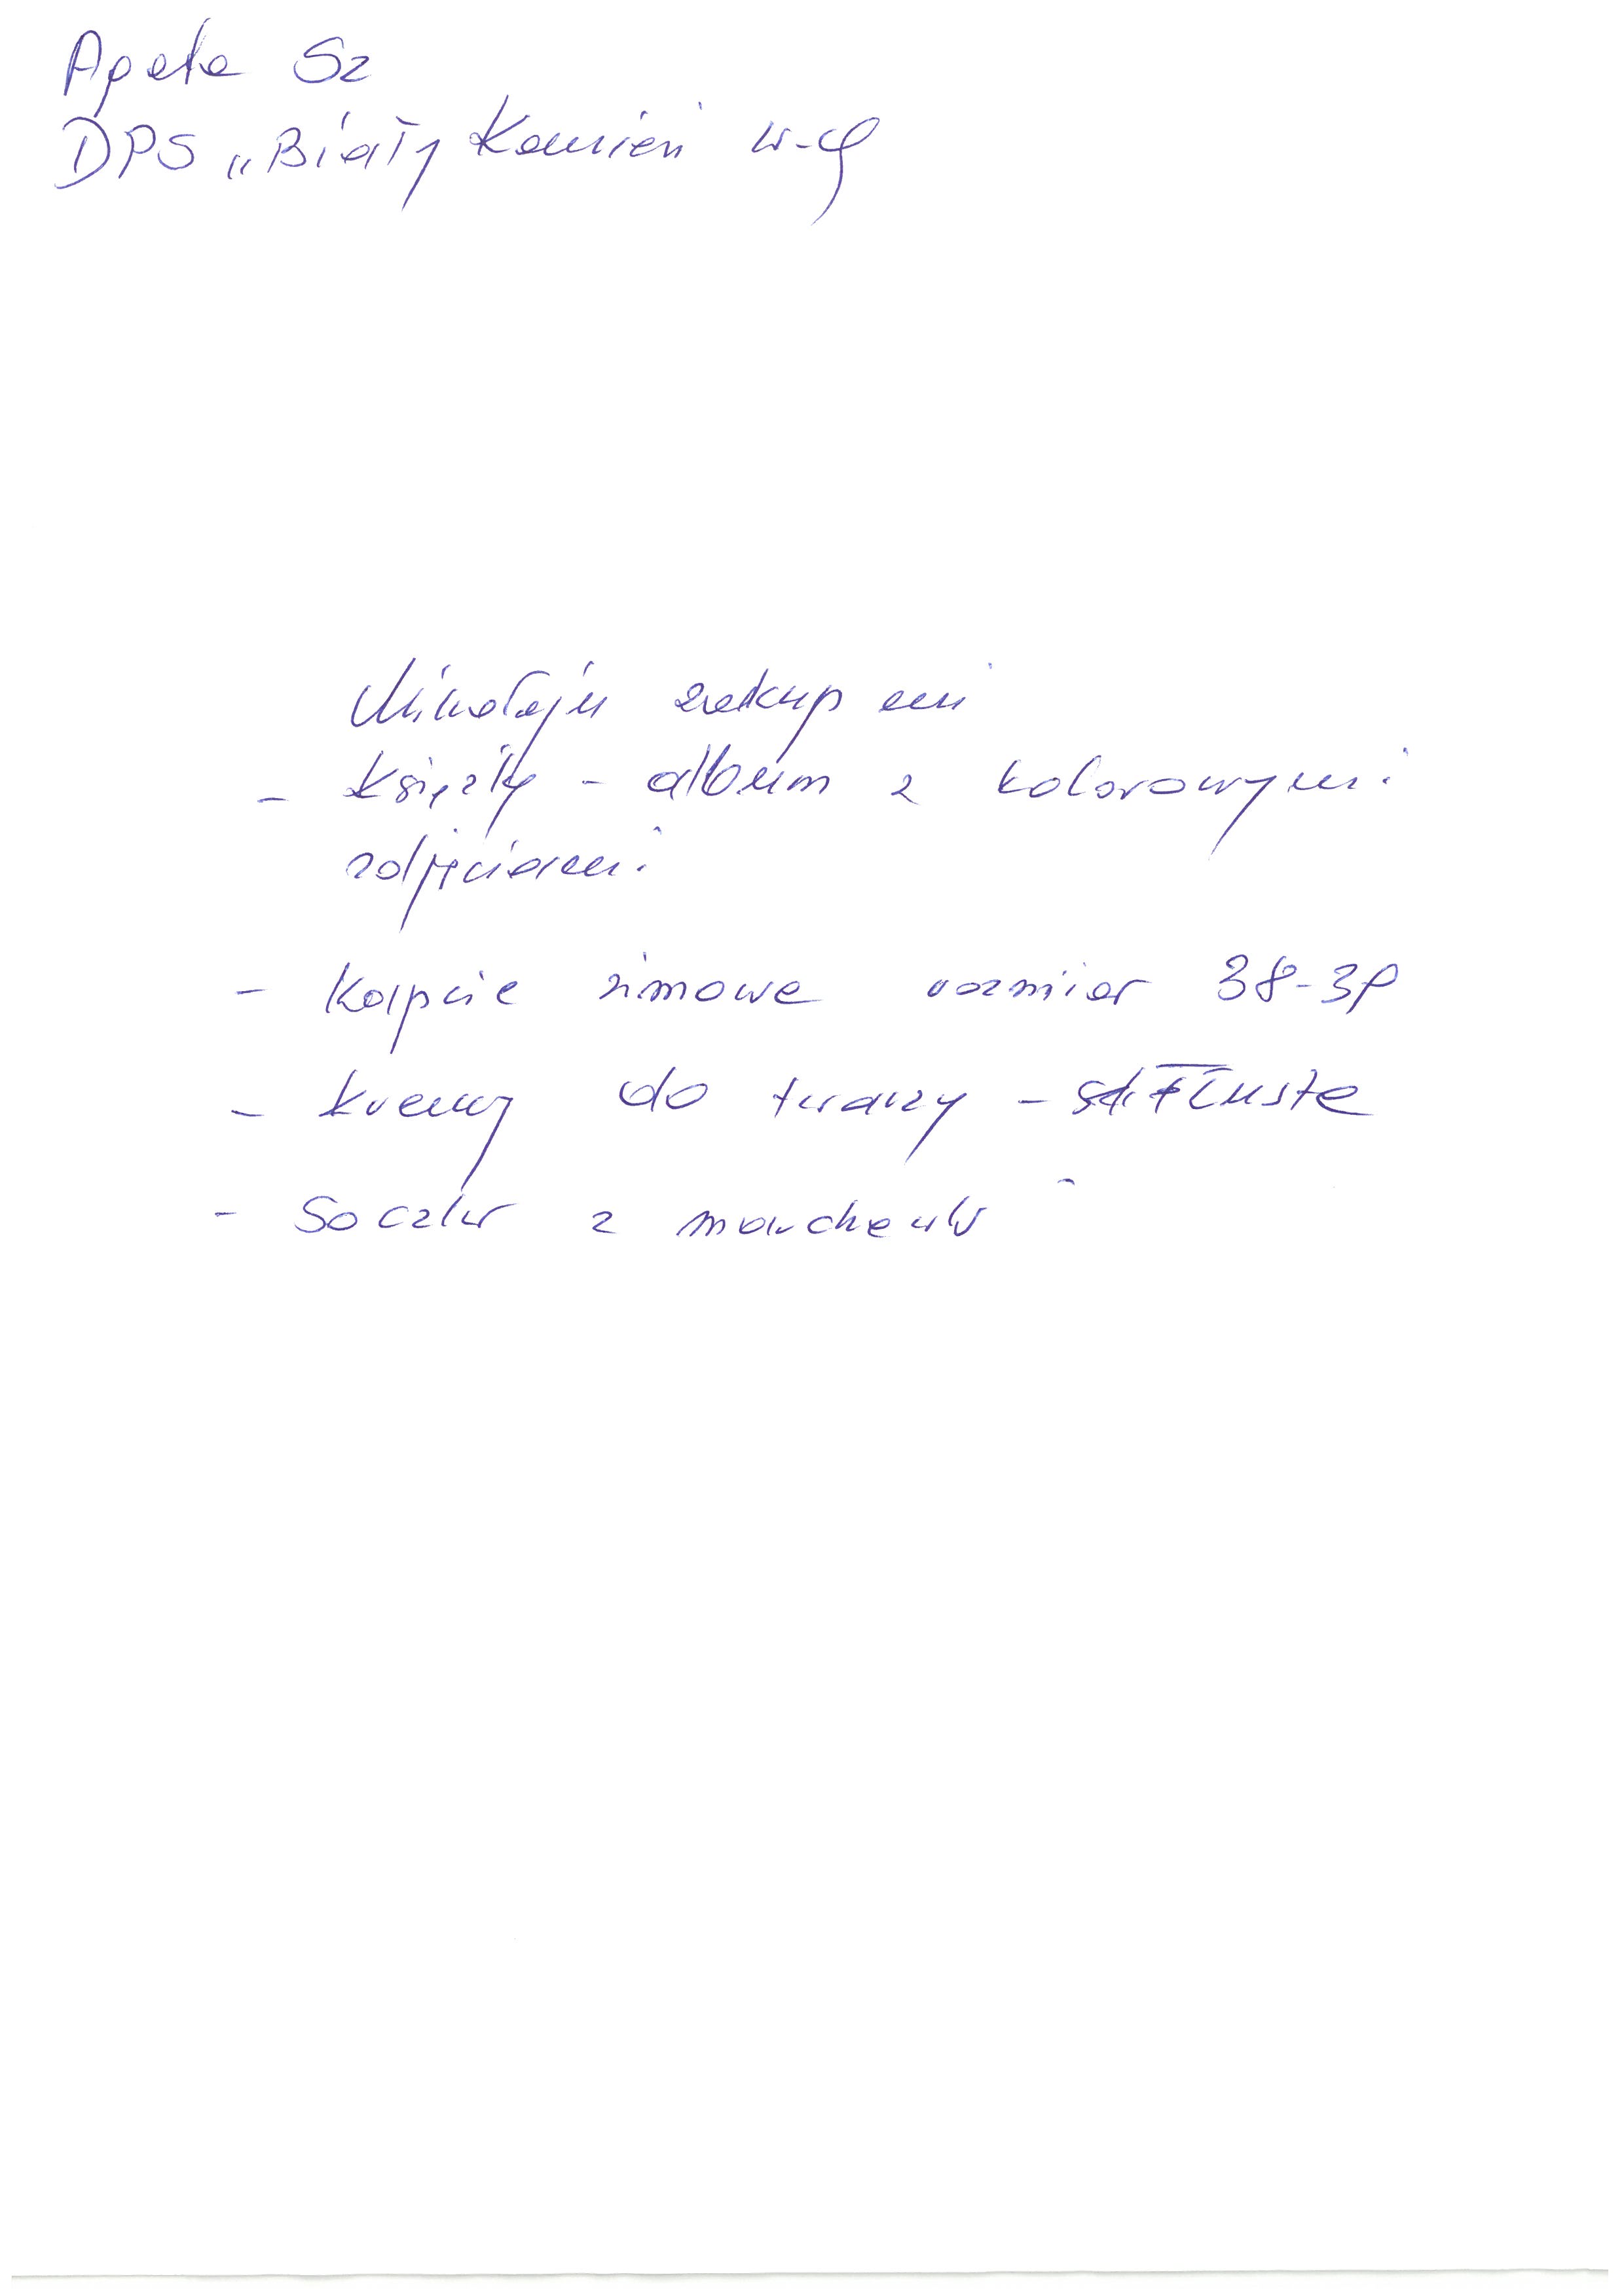 Agata Sz
DPS „Biały Kamień" W-ch
Mikołaju zakup mi
- Książkę - album z kolorowymi
zdjęciami
- Kapcie zimowe rozmiar 38-39
- kremy do twarzy - tłuste
- Soczki z marchewki